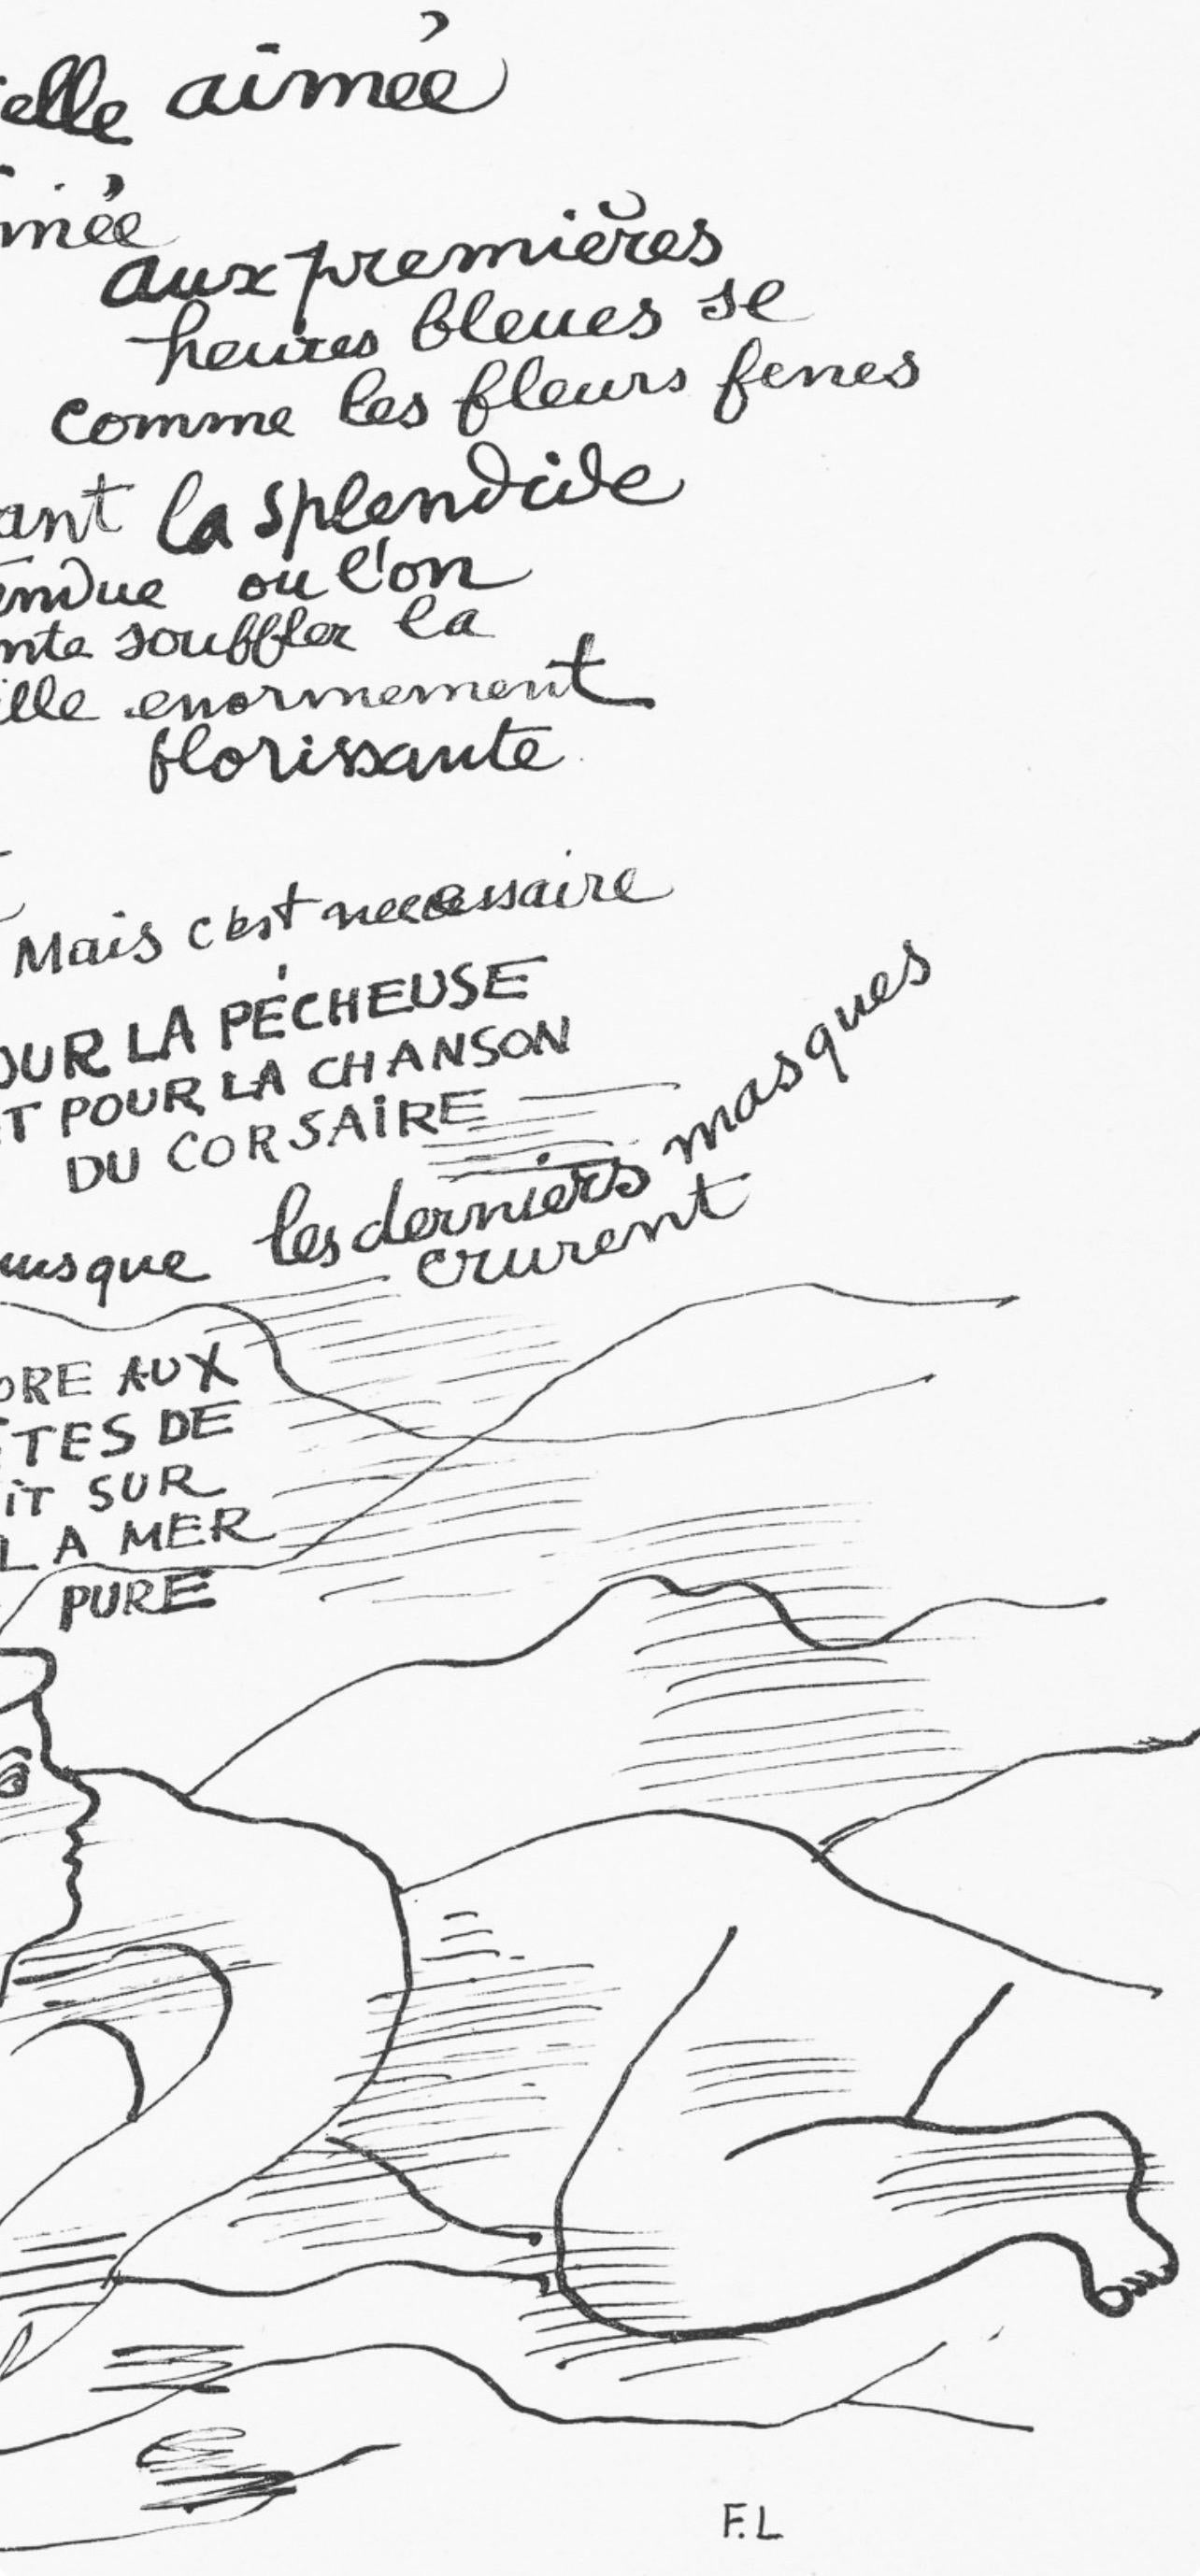 elle aimée
mée
aux premières
heures bleues se
comme les fleurs fenes
ant la splendide
endue ou l'on
nte souffler la
ille enormement
florissante
Mais c'est necessaire
OUR LA PÉCHEUSE
T POUR LA CHANSON
DU CORSAIRE
usque les derniers masques
crurent
ORE AUX
TES DE
IT SUR
LA MER
PURE
F.L